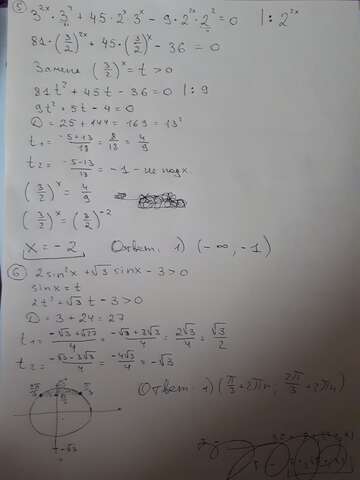 5) 3^{2x} · 3^4 + 45 · 2^x 3^x − 9 · 2^{2x} · 2^2 = 0 | : 2^{2x}
81 · (3/2)^{2x} + 45 · (3/2)^x − 36 = 0
Замена (3/2)^x = t > 0
81t² + 45t − 36 = 0 | : 9
9t² + 5t − 4 = 0
D = 25 + 144 = 169 = 13²
t₁ = (−5+13)/18 = 8/18 = 4/9
t₂ = (−5−13)/18 = −1 − не подх.
(3/2)^x = 4/9
(3/2)^x = (3/2)^{−2}
x = −2 Ответ: 1) (−∞, −1)
6) 2sin²x + √3 sinx − 3 > 0
sinx = t
2t² + √3 t − 3 > 0
D = 3 + 24 = 27
t₁ = (−√3 + √27)/4 = (−√3 + 3√3)/4 = 2√3/4 = √3/2
t₂ = (−√3 − 3√3)/4 = −4√3/4 = −√3
Ответ: 1) (π/3 + 2πn; 2π/3 + 2πn)
2π/3 π/3
−√3